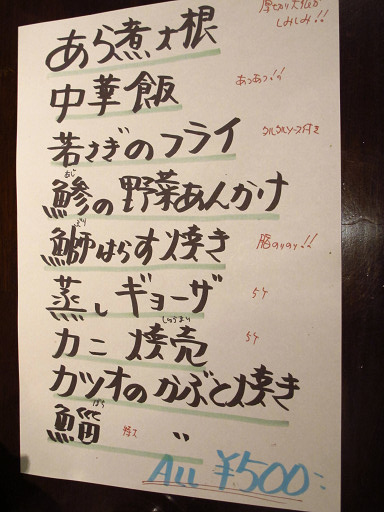 あら煮大根 厚切り大根が
しみしみ!!
中華飯 あつあつ!!
若さぎのフライ タルタルソース付き
鯵の野菜あんかけ
あじ
鰤はらす焼き 脂のりのり!!
ぶり
蒸しギョーザ 5ケ
カニ焼売 5ケ
しゅうまい
カツオのかぶと焼き
鯔 特大 〃
ぼら
All ¥500-